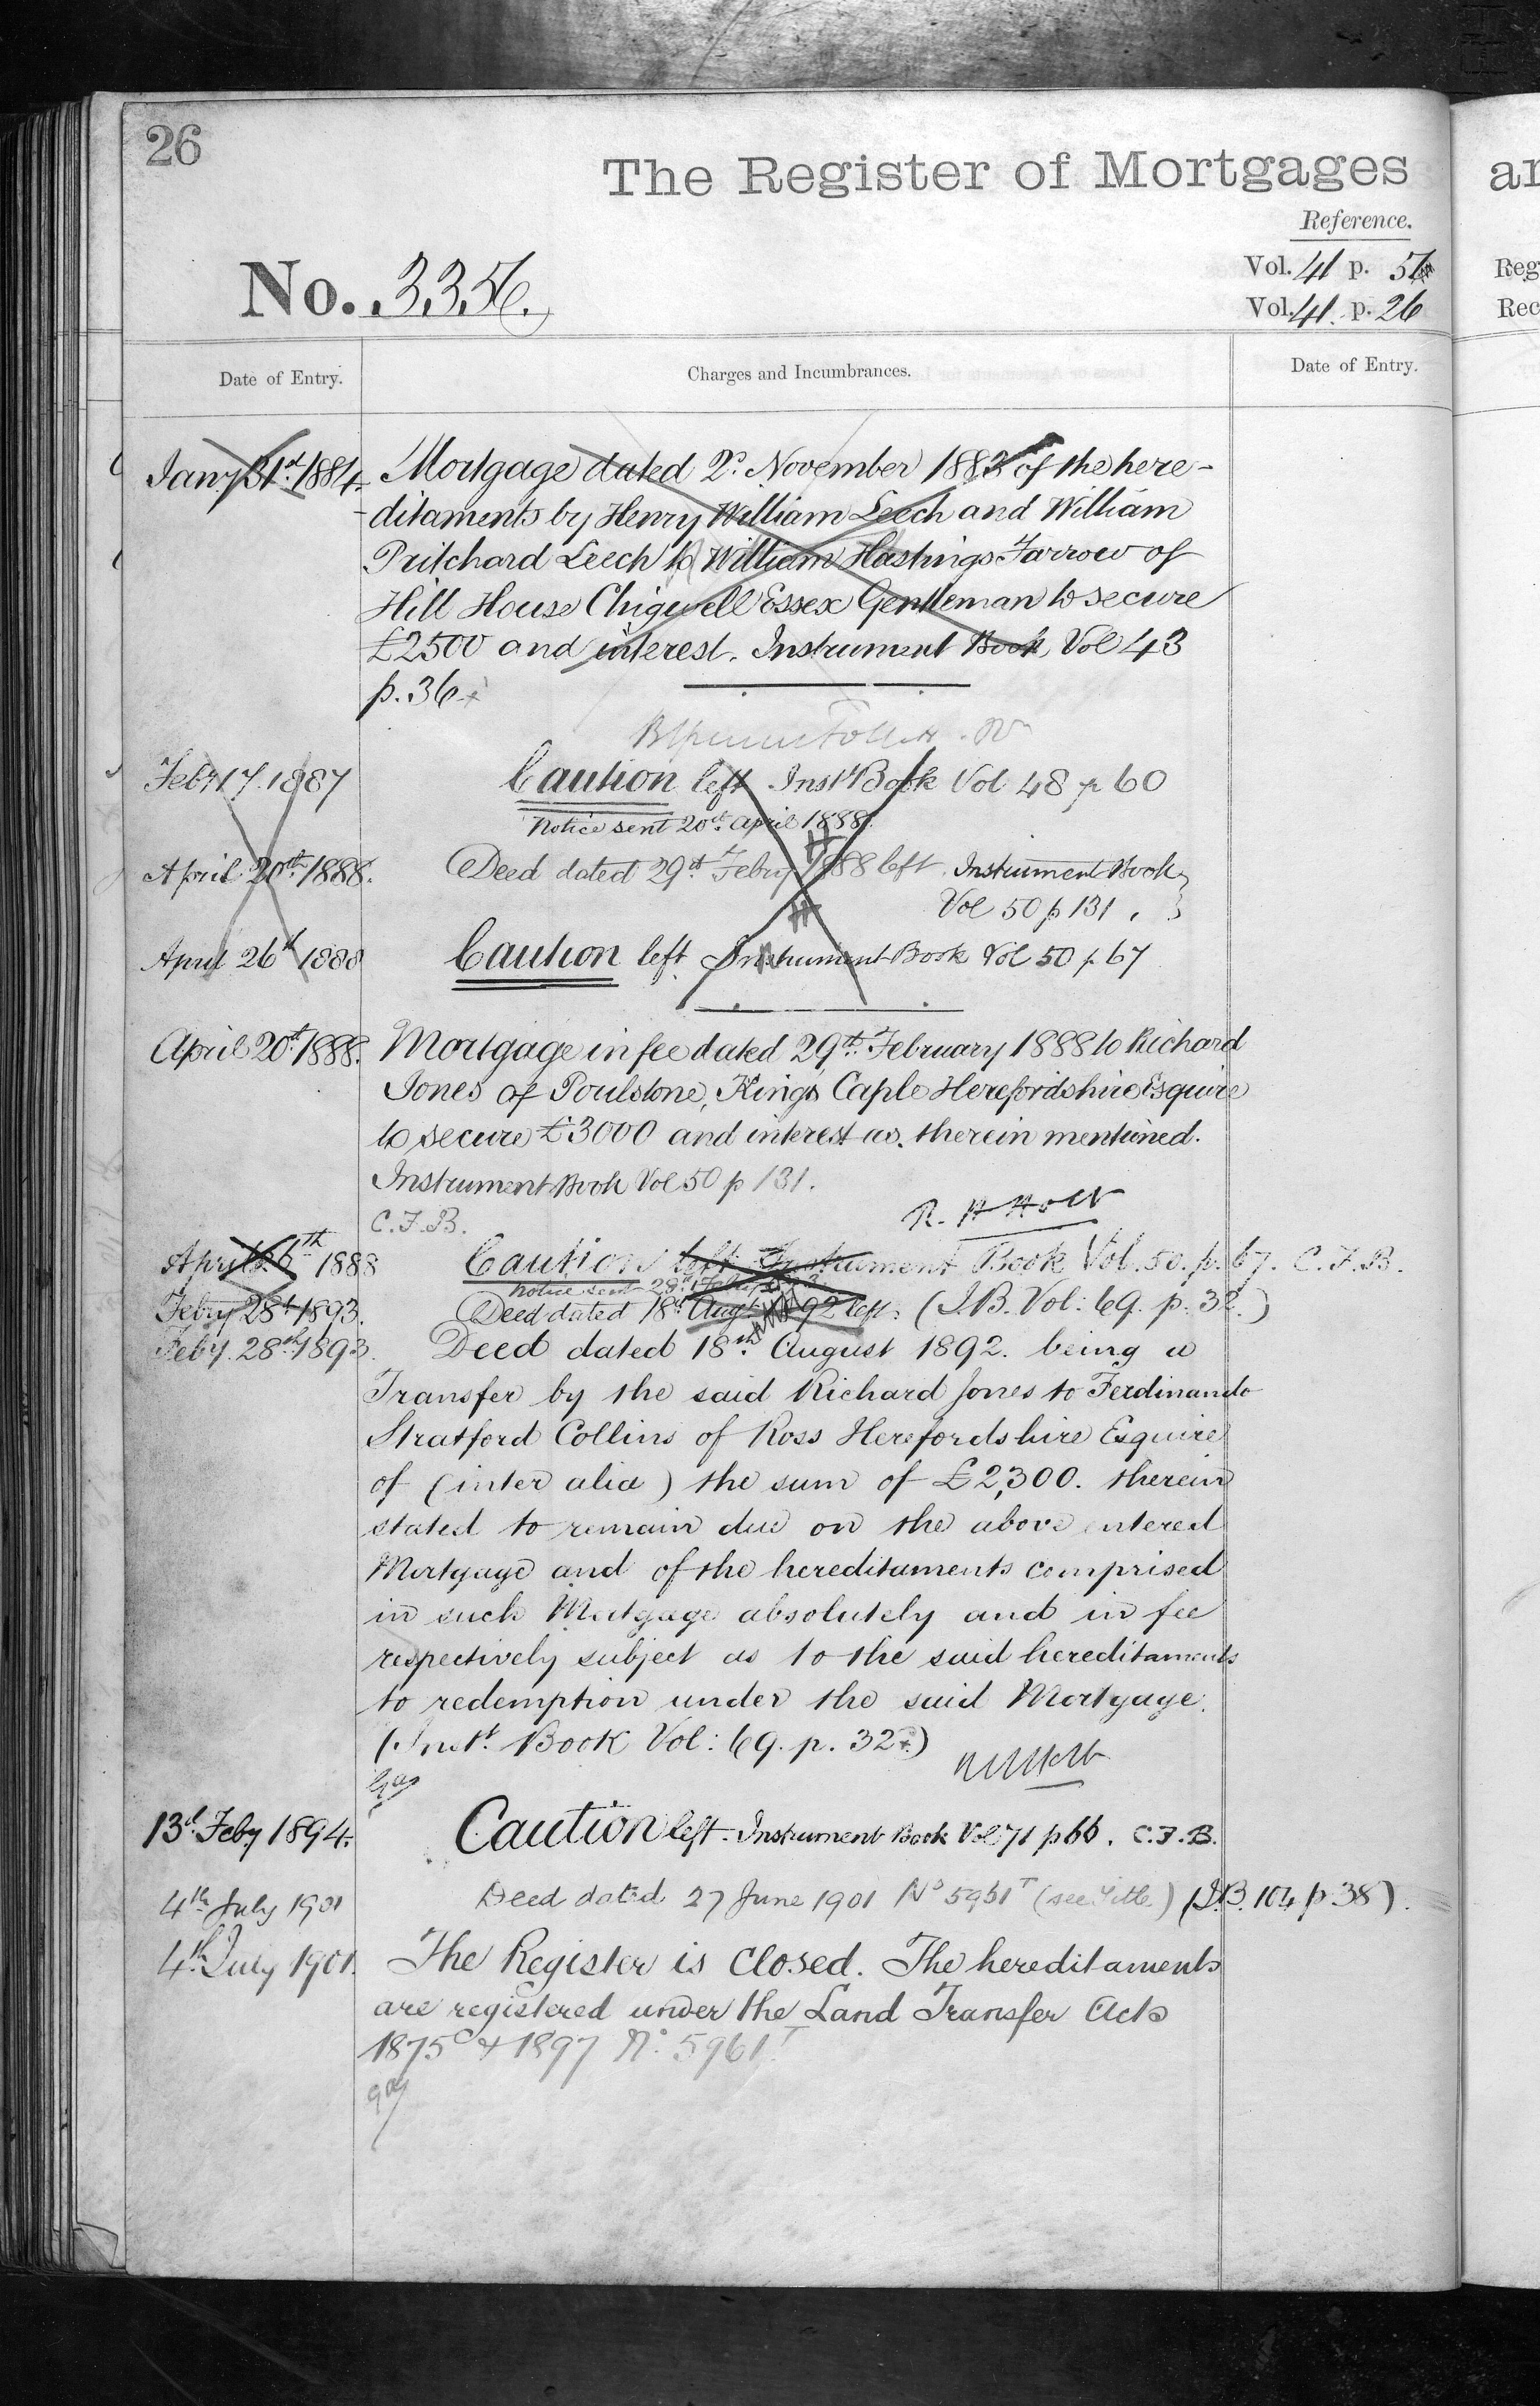 26
The Register of Mortgages
Reference.
Vol. 41 p.
No. 3356.
Vol. 41. p. 26
Date of Entry.
Charges and Incumbrances.
Date of Entry.
Jany 31st 1884. Mortgage dated 2d November 1883 of the here-
ditaments by Henry William Leech and William
Pritchard Leech to William Hastings Farrow of
Hill House Chigwell Essex Gentleman to secure
£2500 and interest. Instrument Book, Vol 43
p. 36
Feby 17. 1887 Caution left Inst Book Vol 48 p 60
Notice sent 20th April 1888.
April 20th 1888. Deed dated 29th Febry 1888 left. Instrument Book
Vol 50 p 131.
April 26th 1888 Caution left Instrument Book Vol 50 p. 67
April 20th 1888. Mortgage in fee dated 29th February 1888 to Richard
Jones of Poulstone, Kings Caple Herefordshire Esquire
to secure £3000 and interest as therein mentioned.
Instrument Book Vol 50 p 131.
C.F.B. R. H Holt
April 26th 1888 Caution left Instrument Book Vol. 50. p. 67. C.F.B.
Notice sent 28th Feby
Feby 28th 1893. Deed dated 18th Augt 92 left. (I.B. Vol: 69. p. 32.)
Feby. 28th 1893. Deed dated 18th August 1892. being a
Transfer by the said Richard Jones to Ferdinando
Stratford Collins of Ross Herefordshire Esquire
of (inter alia) the sum of £2,300. therein
stated to remain due on the above entered
Mortgage and of the hereditaments comprised
in such Mortgage absolutely and in fee
respectively subject as to the said hereditaments
to redemption under the said Mortgage.
(Inst. Book Vol: 69. p. 32.)
13th Feby 1894. Caution left. Instrument Book Vol 71 p 66. C.F.B.
4th July 1901 Deed dated 27 June 1901 No 5961T (see Title.) (I.B. 104 p 38).
4th July 1901. The Register is closed. The hereditaments
are registered under the Land Transfer Acts
1875 & 1897 No. 5961T
Reg
Rec